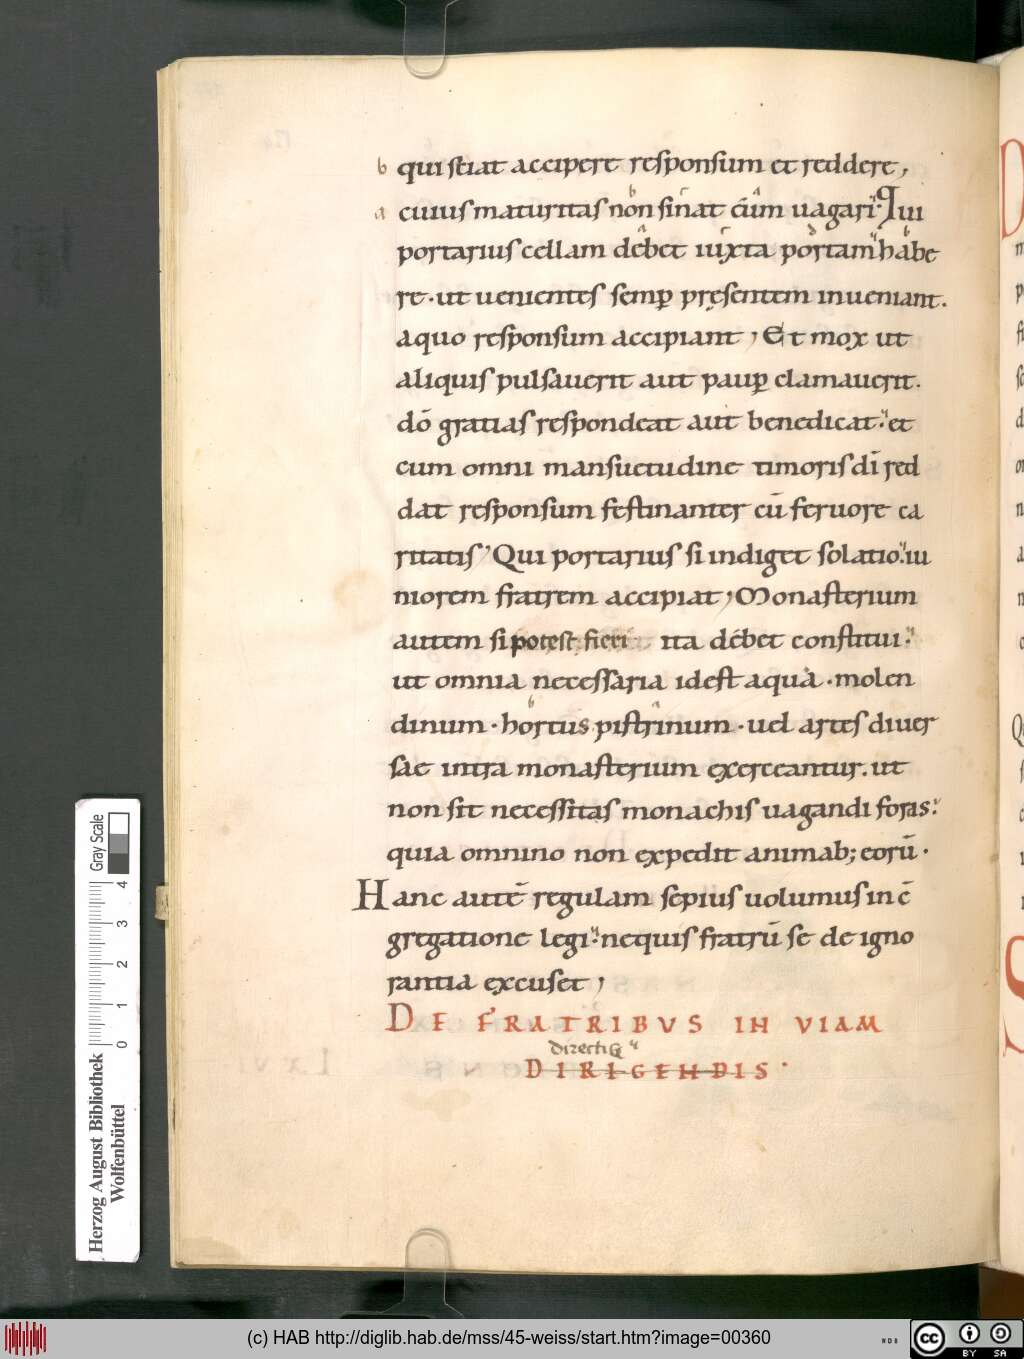 b qui sciat accipere responsum et reddere,
a cuius maturitas non sinat eum uagari. Qui
portarius cellam debet iuxta portam habe
re. ut uenientes semp̱ pręsentem inueniant.
a quo responsum accipiant; Et mox ut
aliquis pulsauerit aut paup̱ clamauerit.
dō gratias respondeat aut benedicat: et
cum omni mansuetudine timoris dī red
dat responsum festinanter cū feruore ca
ritatis; Qui portarius si indiget solatio. iu
niorem fratrem accipiat; Monasterium
autem si potest fieri ita debet constitui:
ut omnia necessaria id est aqua. molen
dinum. hortus. pistrinum. uel artes diuer
sae intra monasterium exerceantur. ut
non sit necessitas monachis uagandi foras:
quia omnino non expedit animab; eorū.
Hanc autē regulam sepius uolumus in c̄
gregatione legi: nequis fratrū se de igno
rantia excuset;
DE FRATRIBUS IN VIAM
directis
DIRIGENDIS.
Gray Scale
4 3 2 1 0
Herzog August Bibliothek
Wolfenbüttel
(c) HAB http://diglib.hab.de/mss/45-weiss/start.htm?image=00360
WDB
cc BY SA